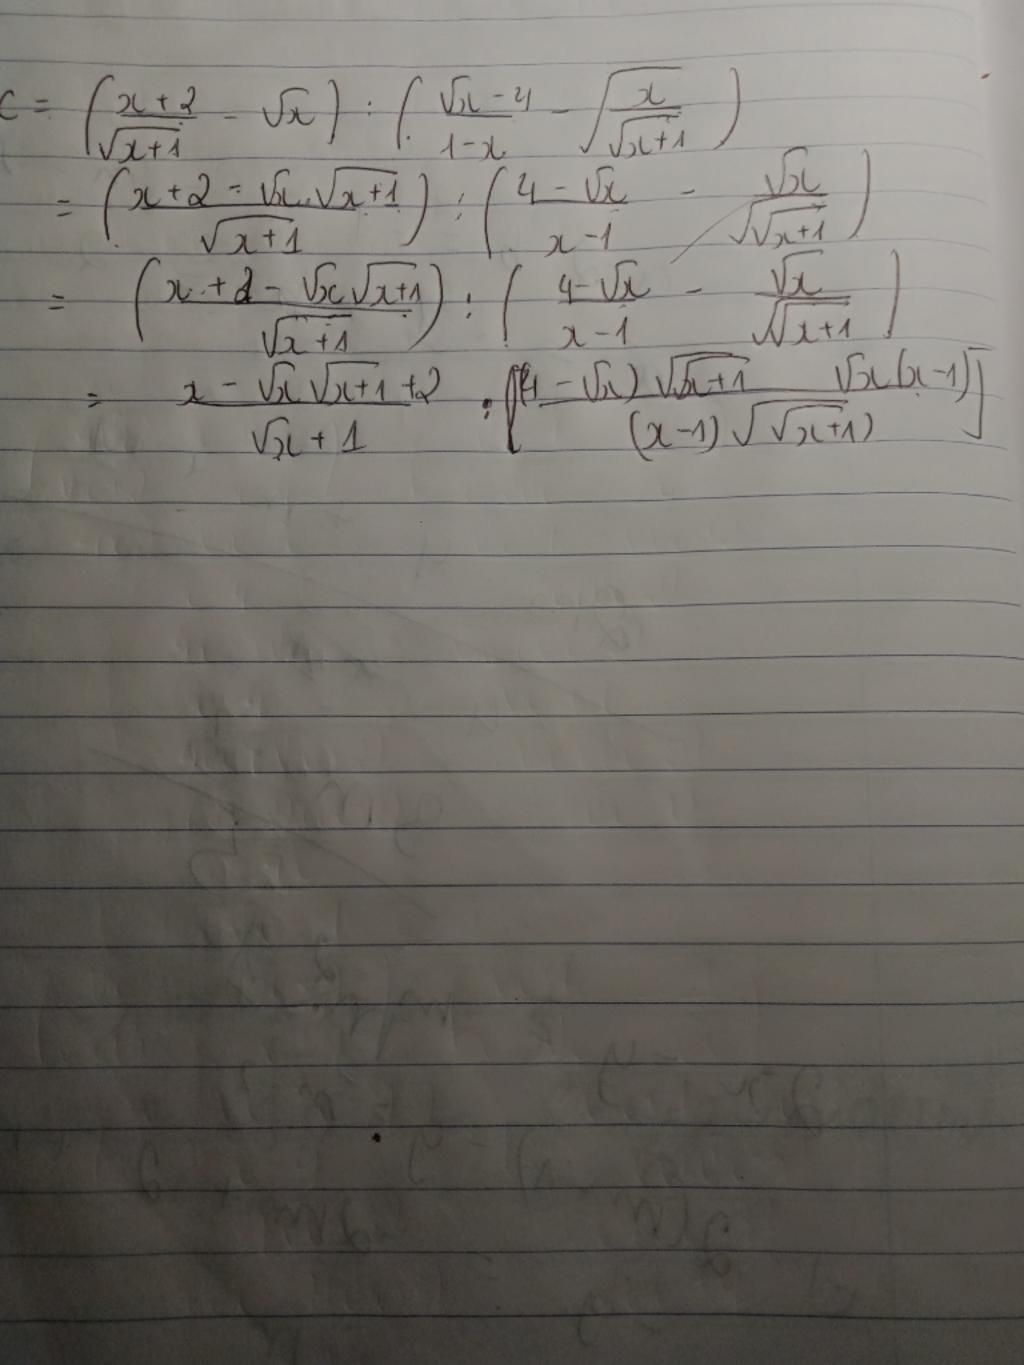 C = ( (x+2)/√(x+1) - √x ) : ( (√x - 4)/(1-x) - √(x/√(x+1)) )
= ( (x+2 - √x.√(x+1))/√(x+1) ) : ( (4-√x)/(x-1) - √x/√(√(x+1)) )
= ( (x+2 - √x√(x+1))/√(x+1) ) : ( (4-√x)/(x-1) - √x/√(√(x+1)) )
= (x - √x√(x+1) + 2)/(√x+1) : [ ((4-√x)√(√x+1) √x(x-1))/((x-1)√(√(x+1))) ]